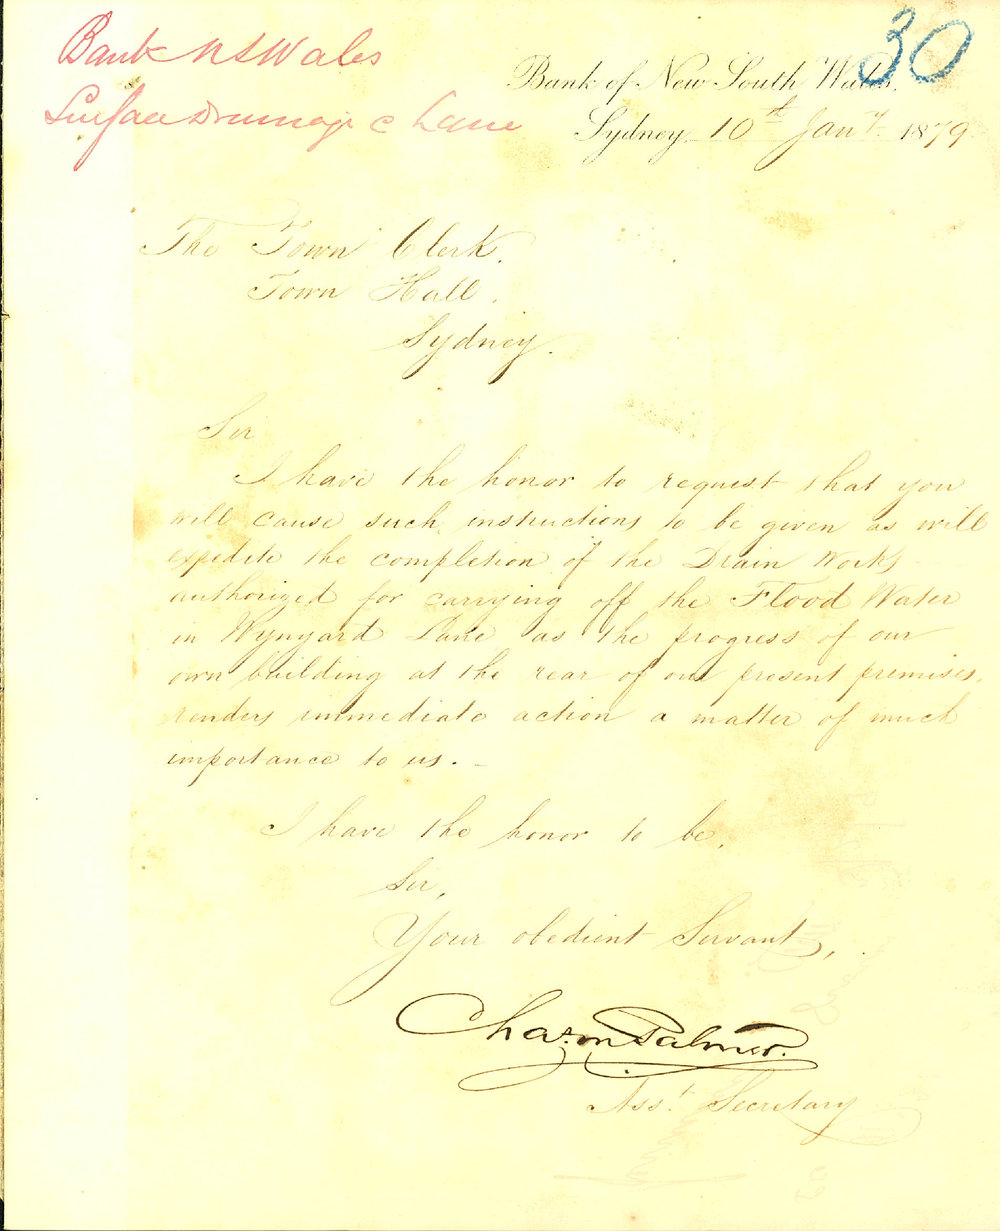 Bank N S Wales
Surface Drainage c Lane
30
Bank of New South Wales,
Sydney, 10th Jany. 1879.
The Town Clerk.
Town Hall.
Sydney.
Sir
I have the honor to request that you
will cause such instructions to be given as will
expedite the completion of the Drain Works
authorized for carrying off the Flood Water
in Wynyard Lane as the progress of our
own building at the rear of our present premises,
renders immediate action a matter of much
importance to us. -
I have the honor to be,
Sir,
Your obedient Servant,
Chas. m Palmer.
Asst. Secretary